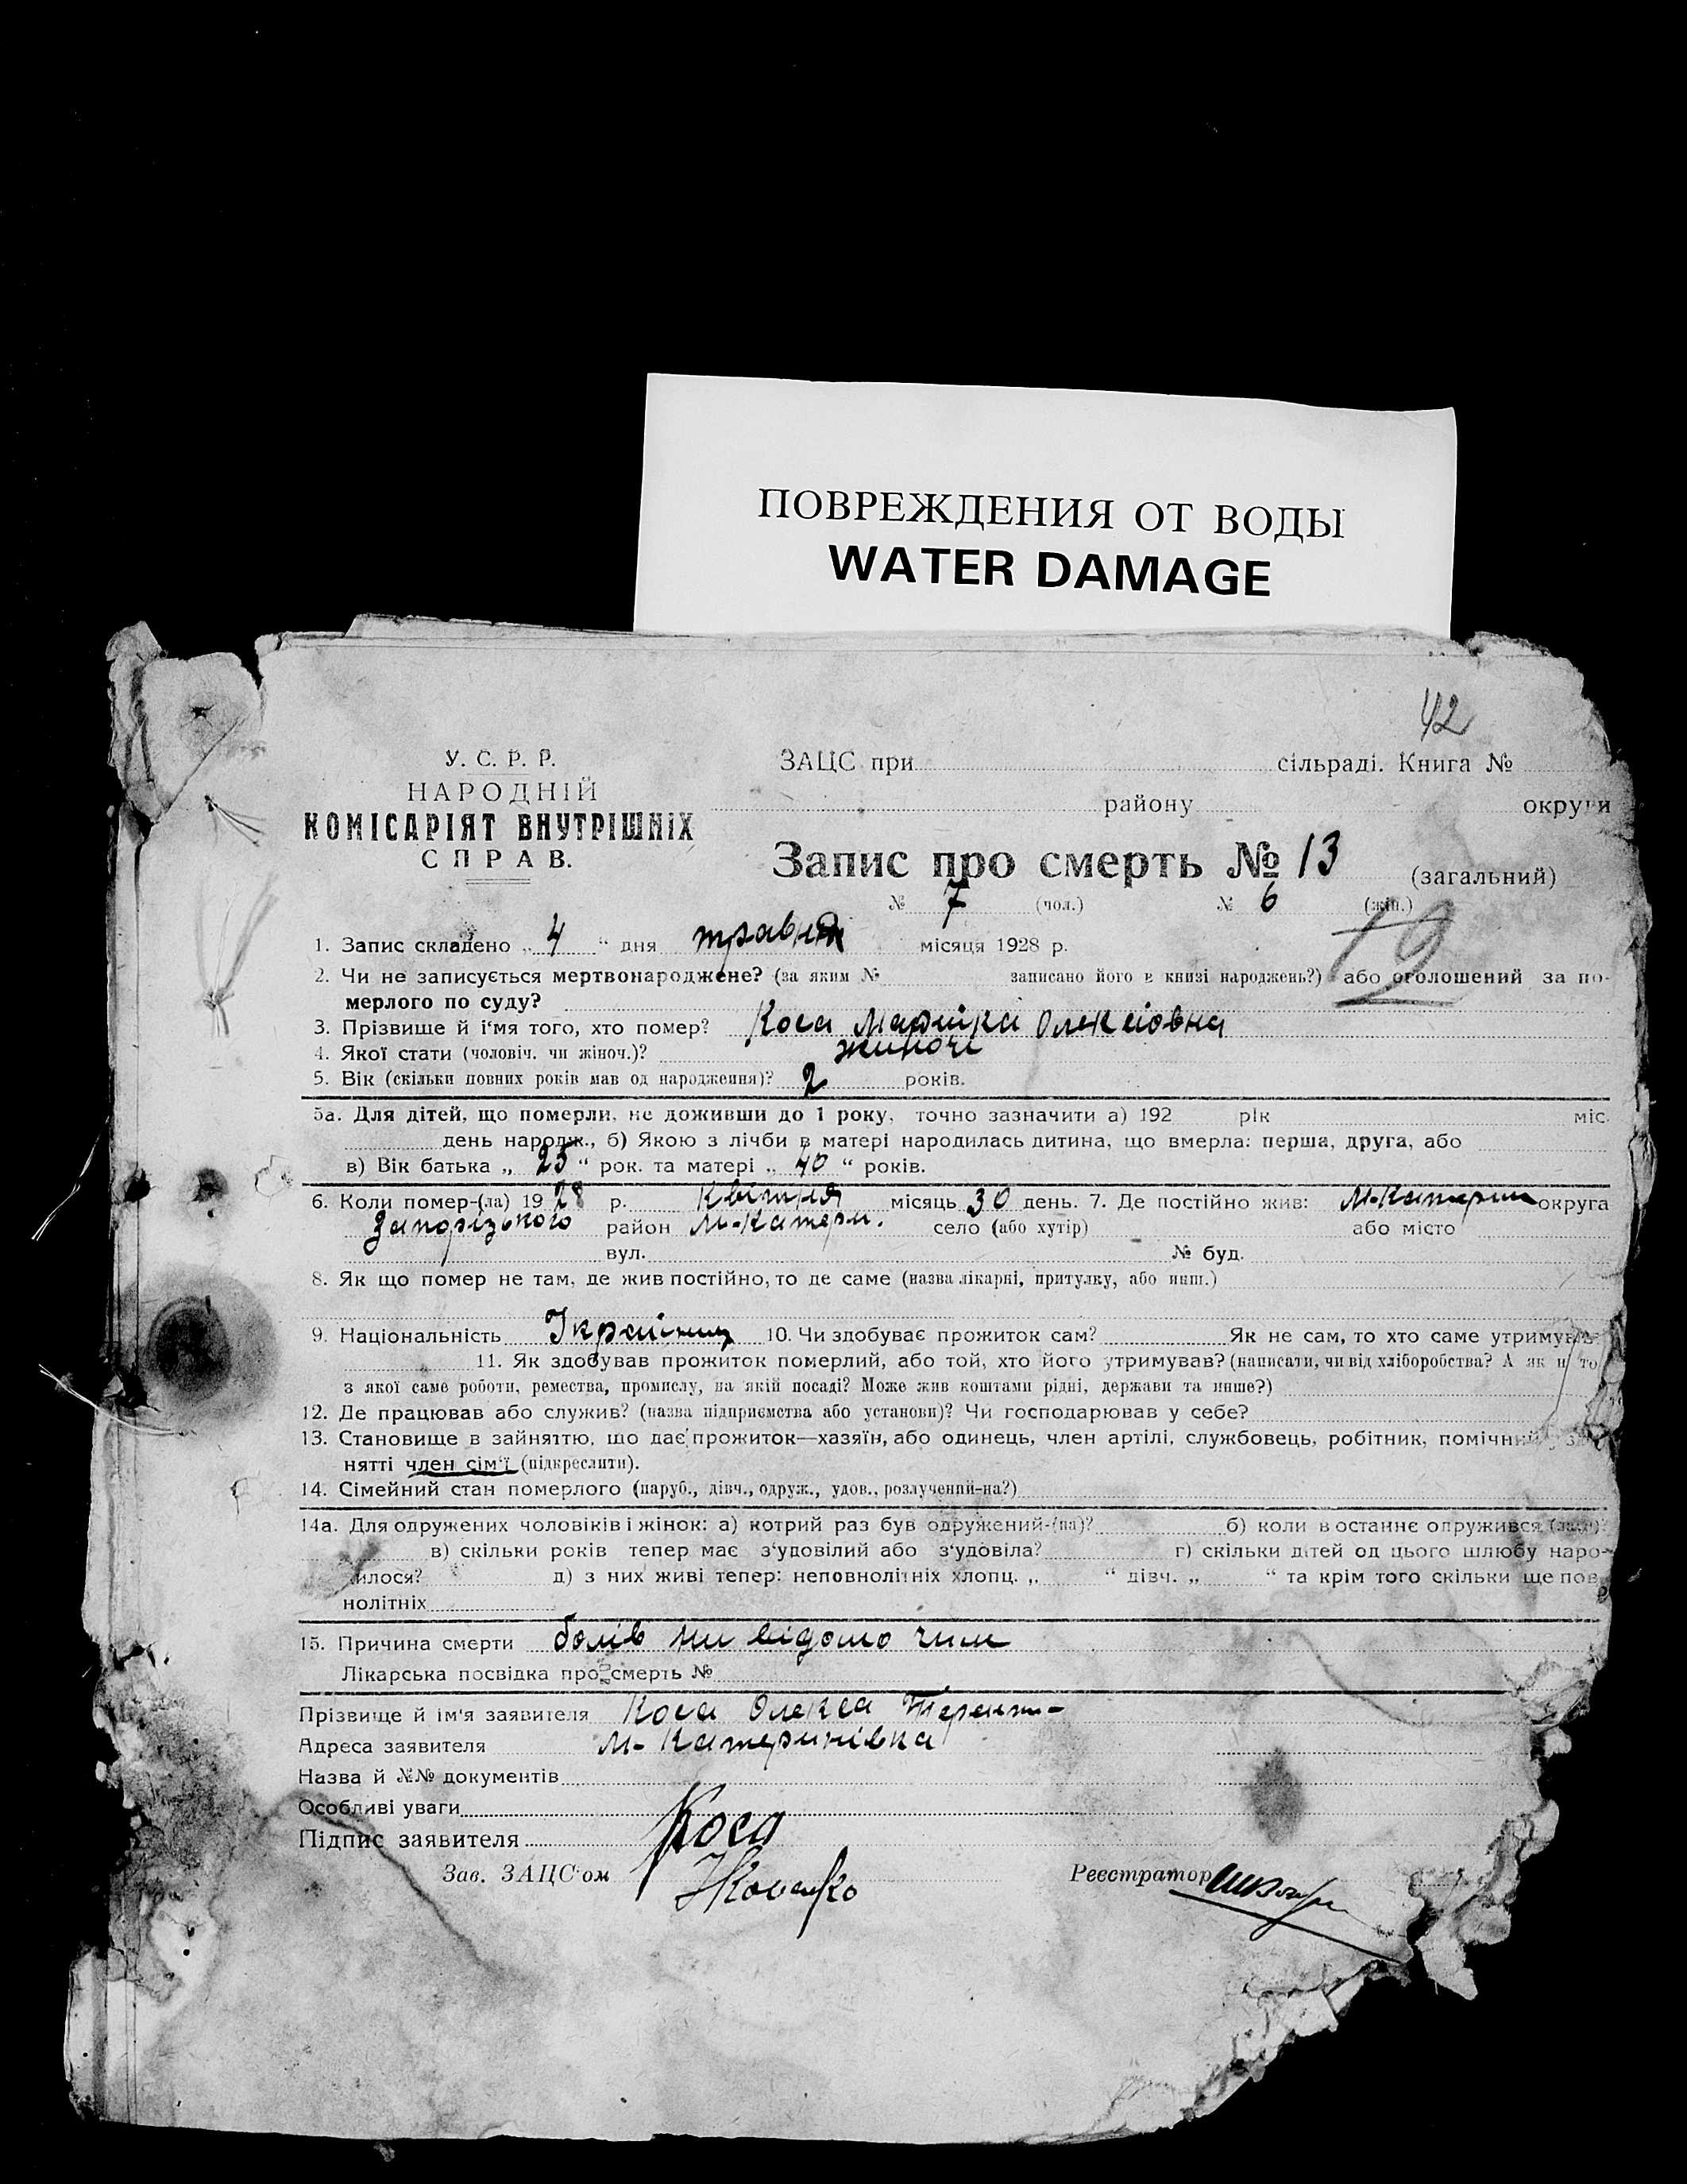 ПОВРЕЖДЕНИЯ ОТ ВОДЫ
WATER DAMAGE
42
У. С. Р. Р.
НАРОДНІЙ
КОМІСАРІЯТ ВНУТРІШНІХ
СПРАВ.
ЗАЦС при сільраді. Книга №
району округи
Запис про смерть № 13 (загальний)
№ 7 (чол.) № 6 (жін.)
19
1. Запис складено „ 4 “ дня травня місяця 1928 р.
2. Чи не записується мертвонароджене? (за яким № записано його в книзі народжень?) або оголошений за по-
мерлого по суду?
3. Прізвище й ім'я того, хто помер? Коса Марийка Олексіовна
4. Якої стати (чоловіч. чи жіноч.)? жиночі
5. Вік (скільки повних років мав од народження)? 2 років.
5а. Для дітей, що померли, не доживши до 1 року, точно зазначити а) 192 рік міс.
день народж., б) Якою з лічби в матері народилась дитина, що вмерла: перша, друга, або
в) Вік батька „ 25 “ рок. та матері „ 40 “ років.
6. Коли помер-(ла) 19 28 р. Квітня місяць 30 день. 7. Де постійно жив: М-Катерин округа
Запорізького район М-Катери. село (або хутір) або місто
вул. № буд.
8. Як що помер не там, де жив постійно, то де саме (назва лікарні, притулку, або инш.)
9. Національність 10. Чи здобуває прожиток сам? Як не сам, то хто саме утримував
11. Як здобував прожиток померлий, або той, хто його утримував? (написати, чи від хліборобства? А як ні то
з якої саме роботи, ремества, промислу, на якій посаді? Може жив коштами рідні, держави та инше?)
12. Де працював або служив? (назва підприємства або установи)? Чи господарював у себе?
13. Становище в зайняттю, що дає прожиток—хазяїн, або одинець, член артілі, службовець, робітник, помічний у за-
нятті член сім'ї (підкреслити).
14. Сімейний стан померлого (паруб., дівч., одруж., удов., розлучений-на?)
14а. Для одружених чоловіків і жінок: а) котрий раз був одружений-(на)? б) коли востаннє одружився (лась)?
в) скільки років тепер має з'удовілий або з'удовіла? г) скільки дітей од цього шлюбу наро-
дилося? д) з них живі тепер: неповнолітніх хлопц. „ “ дівч. „ “ та крім того скільки ще пов
нолітніх
15. Причина смерти болів ни відомо чим
Лікарська посвідка про смерть №
Прізвище й ім'я заявителя Коса Олекса Теренти-
Адреса заявителя М-Катеринівка
Назва й №№ документів
Особливі уваги
Підпис заявителя Коса
Зав. ЗАЦС'ом Реєстратор